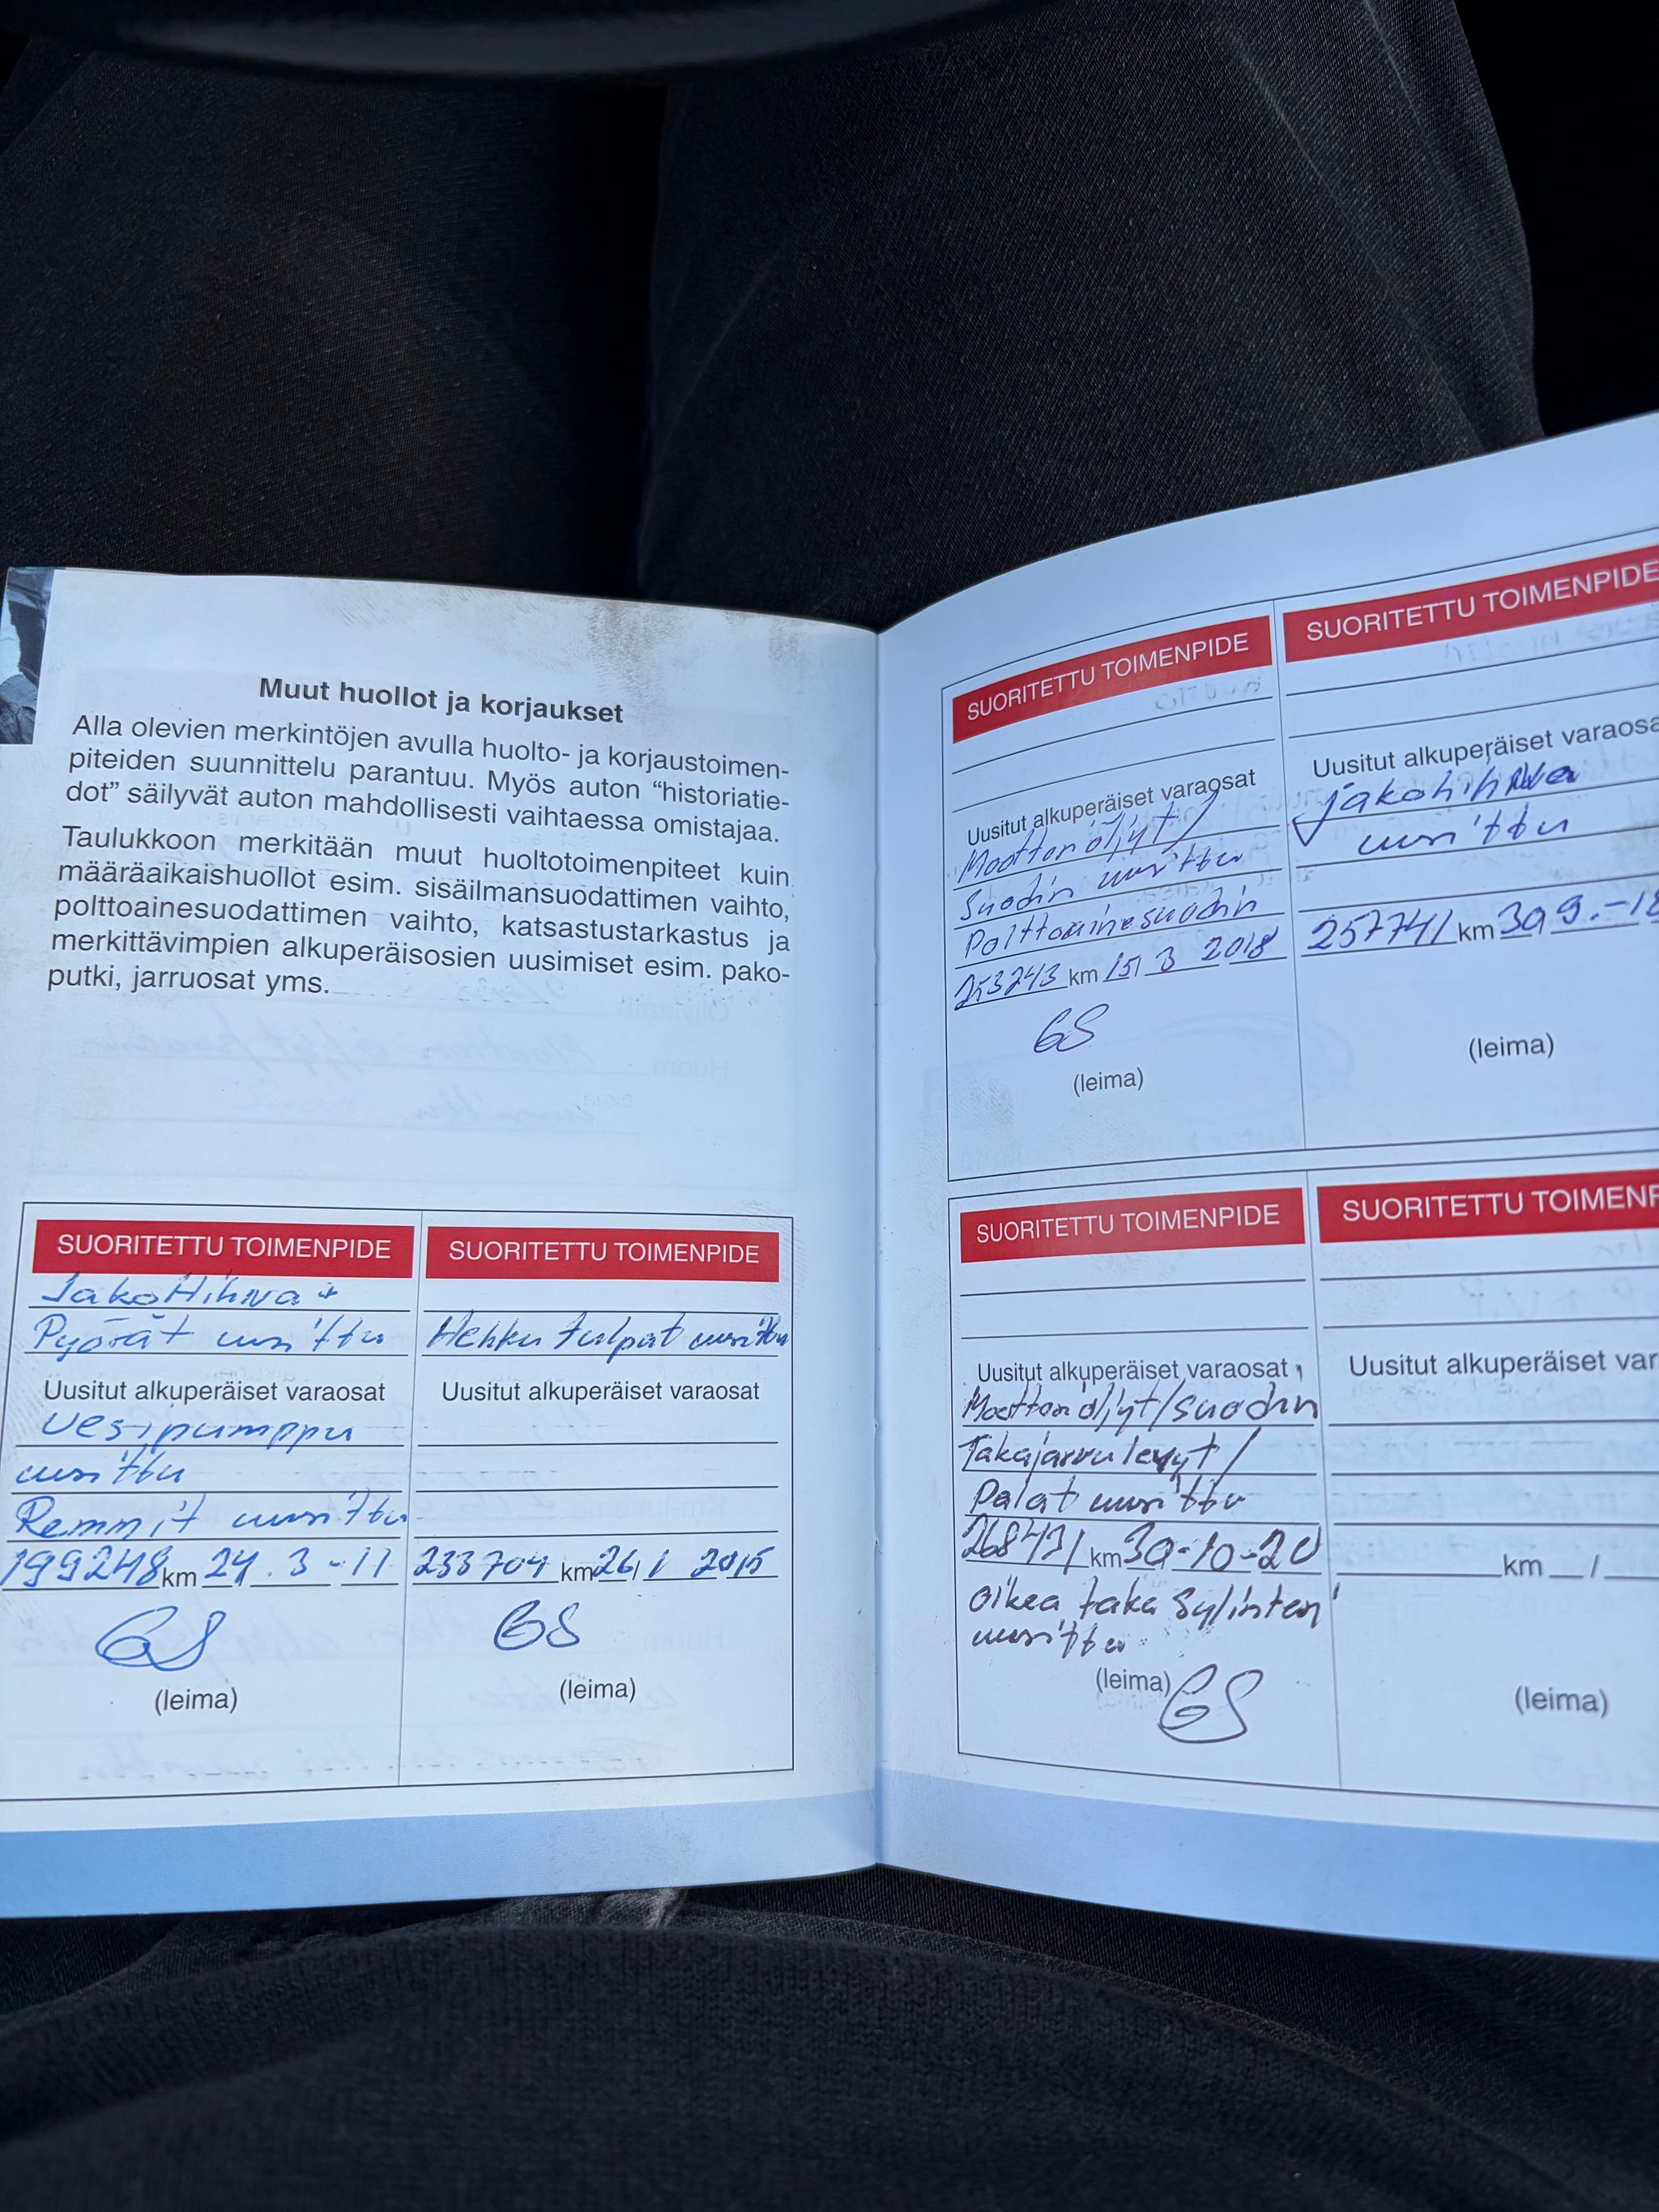 Muut huollot ja korjaukset
Alla olevien merkintöjen avulla huolto- ja korjaustoimen-
piteiden suunnittelu parantuu. Myös auton “historiatie-
dot” säilyvät auton mahdollisesti vaihtaessa omistajaa.
Taulukkoon merkitään muut huoltotoimenpiteet kuin
määräaikaishuollot esim. sisäilmansuodattimen vaihto,
polttoainesuodattimen vaihto, katsastustarkastus ja
merkittävimpien alkuperäisosien uusimiset esim. pako-
putki, jarruosat yms.
SUORITETTU TOIMENPIDE
JakoHihna +
Pyörät uusittu
Uusitut alkuperäiset varaosat
Vesipumppu
uusittu
Remmit uusittu
199248 km 24.3-11
GS
(leima)
SUORITETTU TOIMENPIDE
Hehku tulpat uusittu
Uusitut alkuperäiset varaosat
233704 km 26/1 2015
GS
(leima)
SUORITETTU TOIMENPIDE
Uusitut alkuperäiset varaosat
Moottoriöljyt/
Suodin uusittu
Polttoainesuodin
253243 km 15/3 2018
GS
(leima)
SUORITETTU TOIMENPIDE
Uusitut alkuperäiset varaosa
jakohihna
uusittu
257741 km 30/9.-18
(leima)
SUORITETTU TOIMENPIDE
Uusitut alkuperäiset varaosat
Moottoriöljyt/suodin
Takajarrulevyt/
Palat uusittu
268431 km 30-10-20
oikea taka Sylinteri
uusittu
(leima) GS
SUORITETTU TOIMENP
Uusitut alkuperäiset var
km / 
(leima)